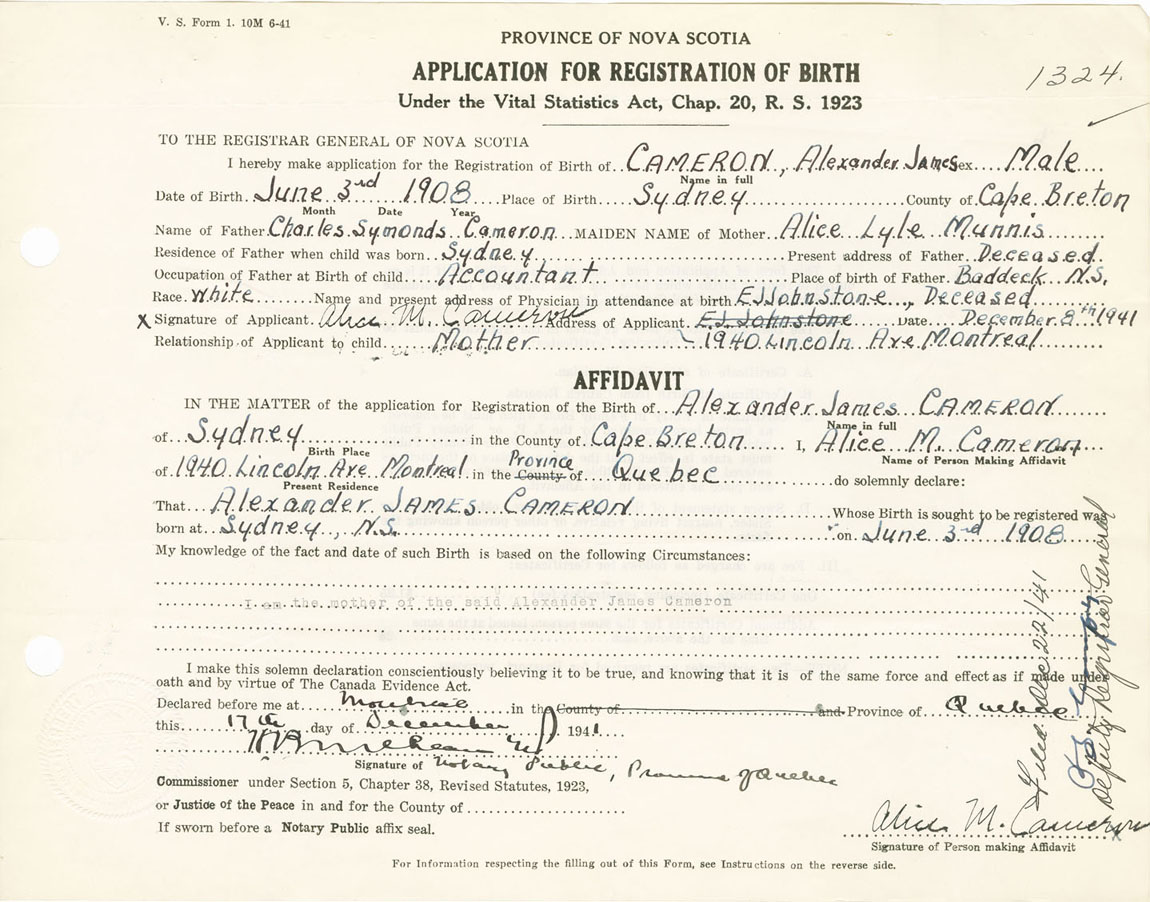 V. S. Form 1. 10M 6-41
PROVINCE OF NOVA SCOTIA
APPLICATION FOR REGISTRATION OF BIRTH
1324.
Under the Vital Statistics Act, Chap. 20, R. S. 1923
TO THE REGISTRAR GENERAL OF NOVA SCOTIA
I hereby make application for the Registration of Birth of CAMERON, Alexander James Sex Male
Name in full
Date of Birth June 3rd 1908 Place of Birth Sydney County of Cape Breton
Month Date Year
Name of Father Charles Symonds Cameron MAIDEN NAME of Mother Alice Lyle Munnis
Residence of Father when child was born Sydney Present address of Father Deceased
Occupation of Father at Birth of child Accountant Place of birth of Father Baddeck N.S.
Race White Name and present address of Physician in attendance at birth EJJohnstone, Deceased
X Signature of Applicant Alice M. Cameron Address of Applicant EJ Johnstone Date December 8th 1941
Relationship of Applicant to child Mother 1940 Lincoln Ave Montreal
AFFIDAVIT
IN THE MATTER of the application for Registration of the Birth of Alexander James CAMERON
Name in full
of Sydney in the County of Cape Breton I, Alice M. Cameron
Birth Place Name of Person Making Affidavit
of 1940 Lincoln Ave Montreal in the County Province of Quebec do solemnly declare:
Present Residence
That Alexander JAMES CAMERON Whose Birth is sought to be registered was
born at Sydney, N.S. on June 3rd 1908
My knowledge of the fact and date of such Birth is based on the following Circumstances:
I am the mother of the said Alexander James Cameron
I make this solemn declaration conscientiously believing it to be true, and knowing that it is of the same force and effect as if made under
oath and by virtue of The Canada Evidence Act.
Declared before me at Montreal in the County of and Province of Quebec
this 17th day of December 1941
Signature of Notary Public, Province of Quebec
Commissioner under Section 5, Chapter 38, Revised Statutes, 1923,
or Justice of the Peace in and for the County of
If sworn before a Notary Public affix seal.
Alice M. Cameron
Signature of Person making Affidavit
For Information respecting the filling out of this Form, see Instructions on the reverse side.
Filed Dec 22/41
Deputy Registrar General